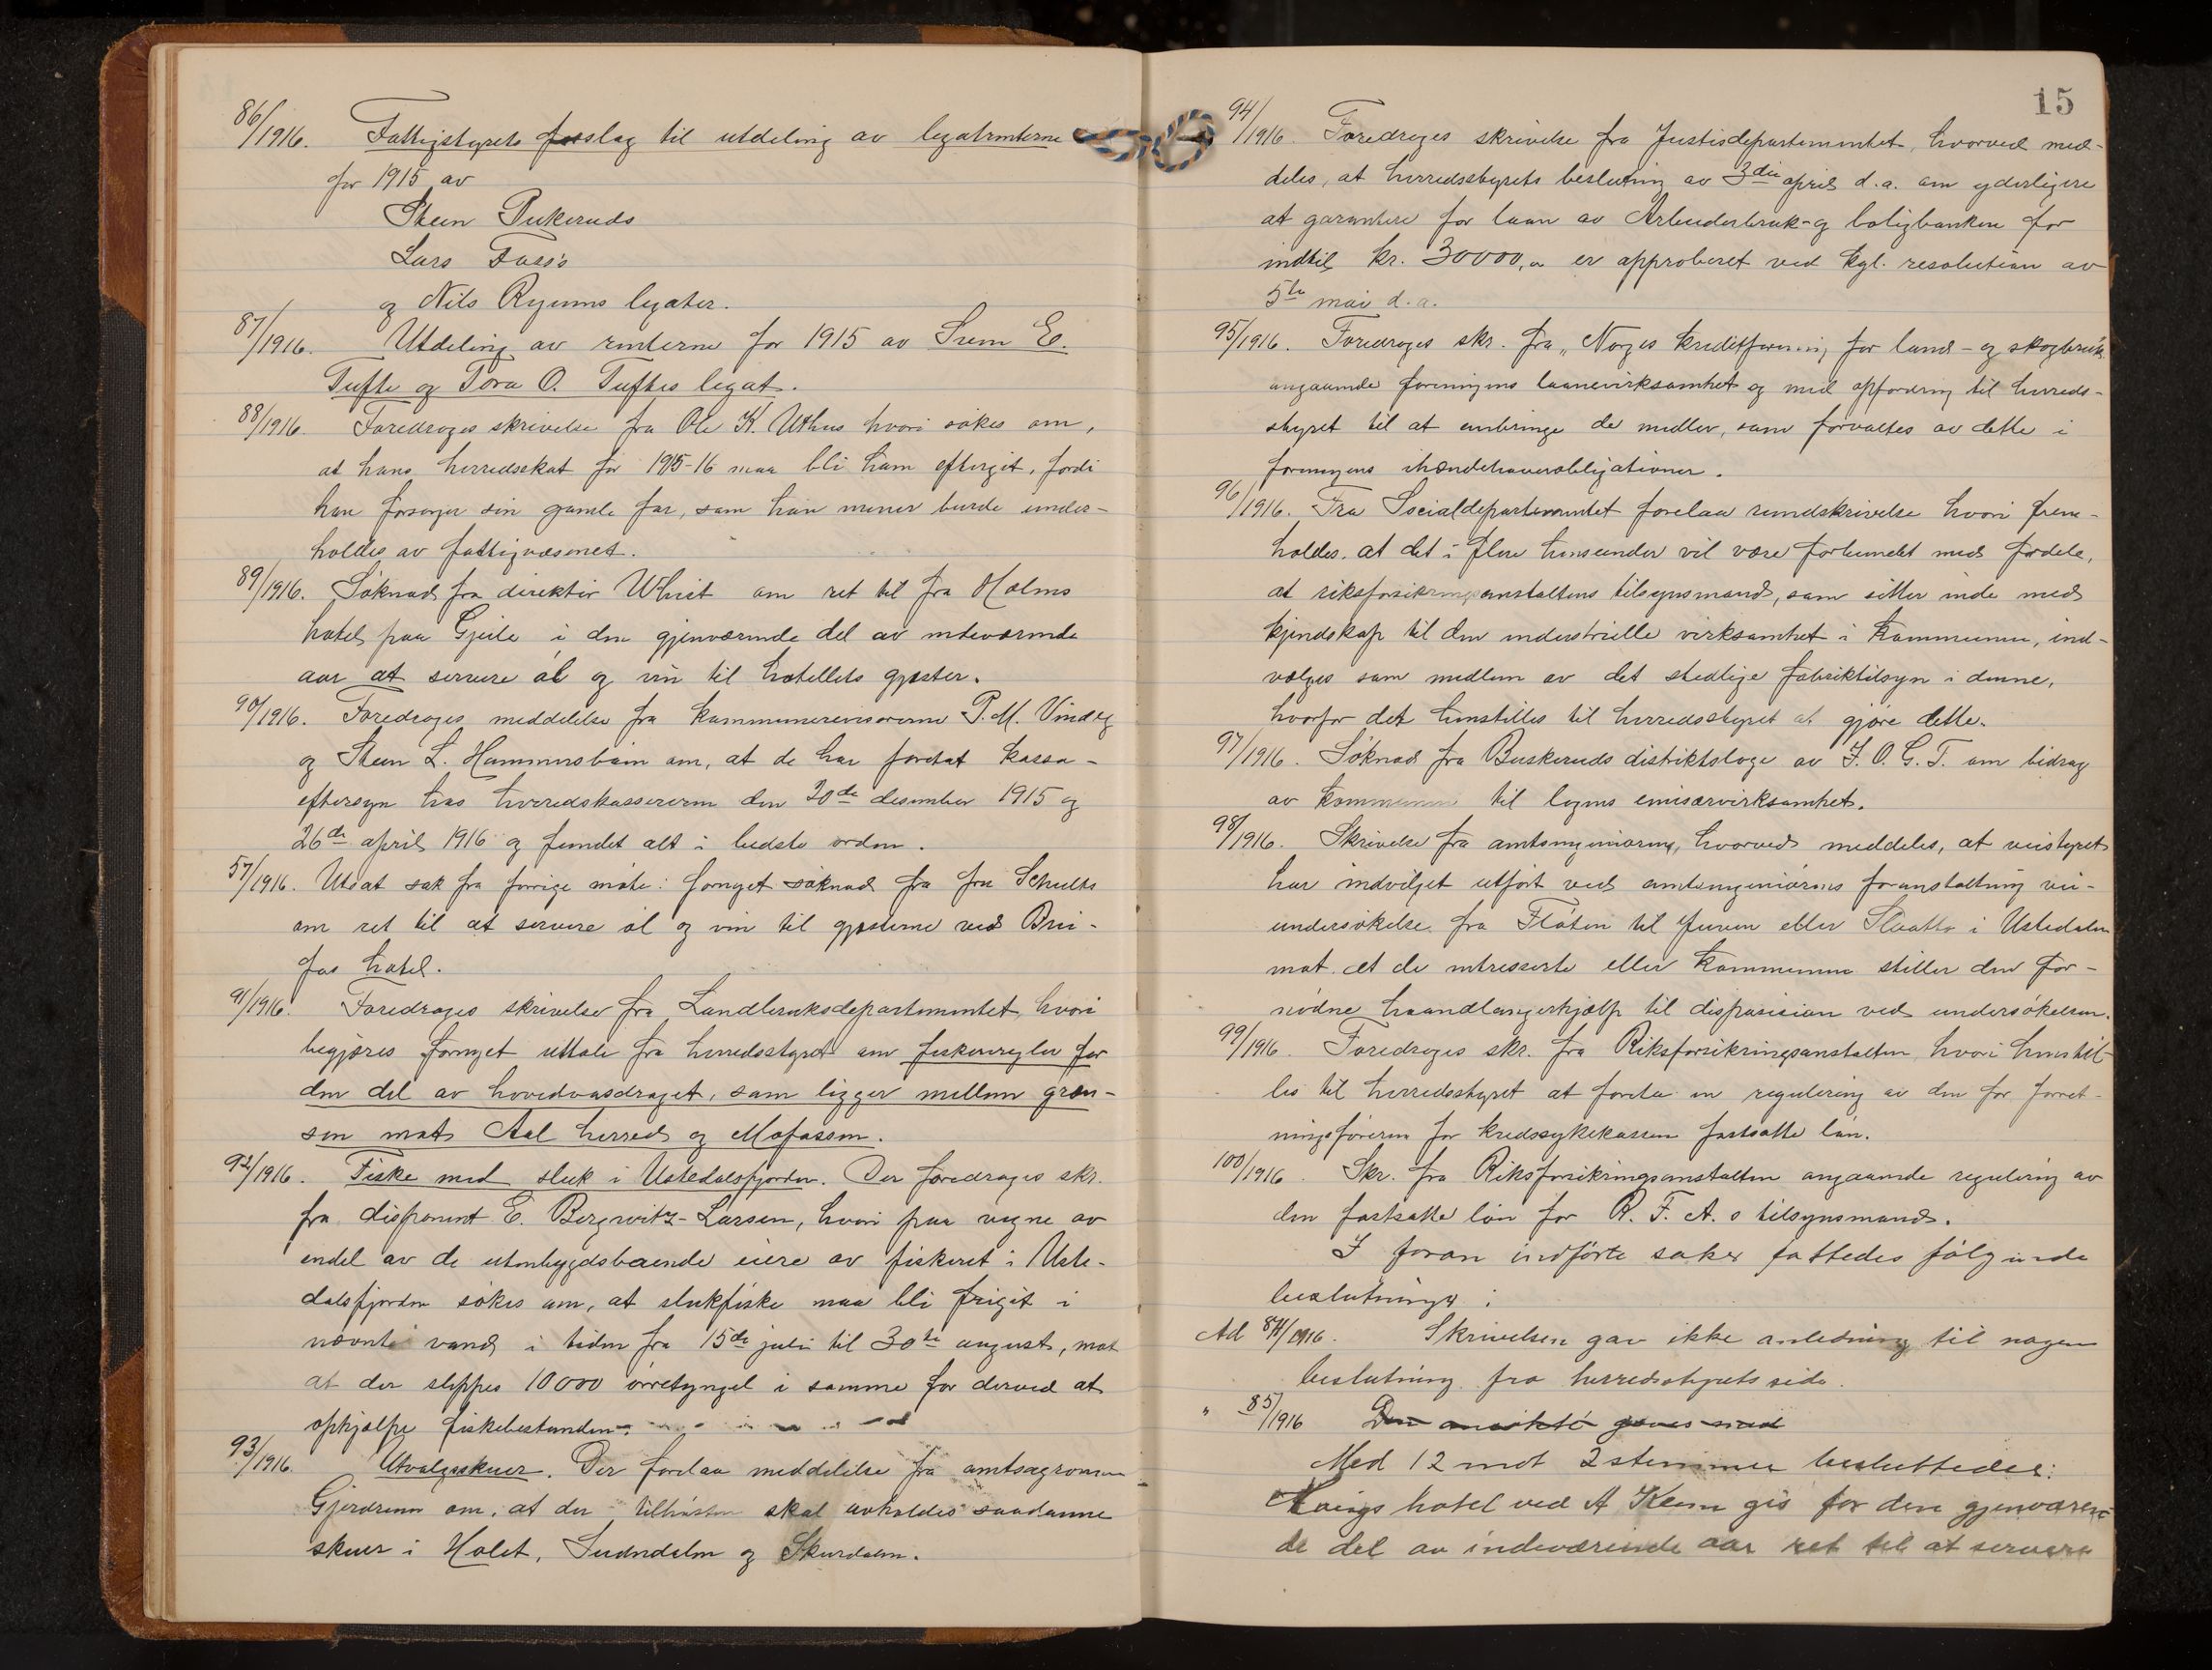 86/1916. Fattigstyrets forslag til utdeling av legatrenterne
for 1915 av
Sten Pukeruds
Lars Foss's
og Nils Ryenns legater.
87/1916. Utdeling av renterne for 1915 av Svein E.
Tufte og Tora O. Tuftes legat.
88/1916. Foredroges skrivelse fra Ole K. Uthus hvori søkes om,
at hans herredsskat for 1915-16 maa bli ham eftergit, fordi
han forsørger sin gamle far, som han mener burde under-
holdes av fattigvæsenet.
89/1916. Søknad fra direktør Whist om ret til fra Holms
hotel paa Geilo i den gjenværende del av indeværende
aar at servere øl og vin til hotellets gjæster.
90/1916. Foredroges meddelelse fra kommunerevisorerne P. M. Vindeg
og Sten L. Hammersbøin om, at de har foretat kassa-
eftersyn hos herredskassereren den 20de desember 1915 og
26de april 1916 og fundet alt i bedste orden.
57/1916. Utsat sak fra forrige møte: fornyet søknad fra fru Schults
om ret til at servere øl og vin til gjæsterne ved Brei-
fos hotel.
91/1916. Foredroges skrivelse fra Landbruksdepartementet, hvori
begjæres fornyet uttale fra herredsstyret om fiskeregler for
den del av hovedvasdraget, som ligger mellem græn-
sen mot Aal herred og Mofossen.
92/1916. Fiske med sluk i Ustedalsfjorden. Der foredroges skr.
fra disponent E. Bergwitz-Larsen, hvori paa vegne av
endel av de utenbygdsboende eiere av fiskeret i Uste-
dalsfjorden søkes om, at slukfiske maa bli frigit i
nævnte vand i tiden fra 15de juli til 30te august, mot
at der slippes 10000 ørretyngel i samme for derved at
ophjælpe fiskebestanden.
93/1916. Utvalgsskuer. Der forelaa meddelelse fra amtsagronom
Gjerdrem om, at der tilhøsten skal avholdes saadanne
skuer i Holet, Sudndalen og Skurdalen.
15
94/1916. Foredroges skrivelse fra Justisdepartementet, hvorved med-
deles, at herredsstyrets beslutning av 3die april d.a. om yderligere
at garantere for laan av Arbeiderbruk- og boligbanken for
indtil kr. 30000,00 er approberet ved kgl. resolution av
5te mai d.a.
95/1916. Foredroges skr. fra "Norges kreditforening for land- og skogbruk
angaaende foreningens laanevirksomhet og med opfordring til herreds-
styret til at anbringe de midler, som forvaltes av dette i
foreningens ihændehaverobligationer.
96/1916. Fra Socialdepartementet forelaa rundskrivelse hvori frem-
holdes, at det i flere henseender vil være forbundet med fordele,
at riksforsikringsanstaltens tilsynsmand, som sitter inde med
kjendskap til den industrielle virksomhet i kommunen, ind-
vælges som medlem av det stedlige fabriktilsyn i denne,
hvorfor det henstilles til herredsstyret at gjøre dette.
97/1916. Søknad fra Buskeruds distriktsloge av I. O. G. T. om bidrag
av kommunen til logens emisærvirksomhet.
98/1916. Skrivelse fra amtsingeniøren, hvorved meddeles, at veistyret
har indvilget utført ved amtsingeniørens foranstaltning vei-
undersøkelse fra Fløten til Juven eller Slaatto i Ustedalen
mot at de intresserte eller kommunen stiller den for-
nødne haandlangerhjælp til disposision ved undersøkelsen.
99/1916. Foredroges skr. fra Riksforsikringsanstalten, hvori henstil-
les til herredsstyret at foreta en regulering av den for forret-
ningsføreren for kredssykekassen fastsatte løn.
100/1916. Skr. fra Riksforsikringsanstalten angaaende regulering av
den fastsatte løn for R. F. A.s tilsynsmand.
I foran indførte saker fattedes følgende
beslutninger:
Ad 84/1916. Skrivelsen gav ikke anledning til nogen
beslutning fra herredsstyrets side.
" 85/1916 Den ansøkte gaves med
Med 12 mot 2 stemmer besluttedes:
Haugs hotel ved A Klem gis for den gjenværen-
de del av indeværende aar ret til at servere